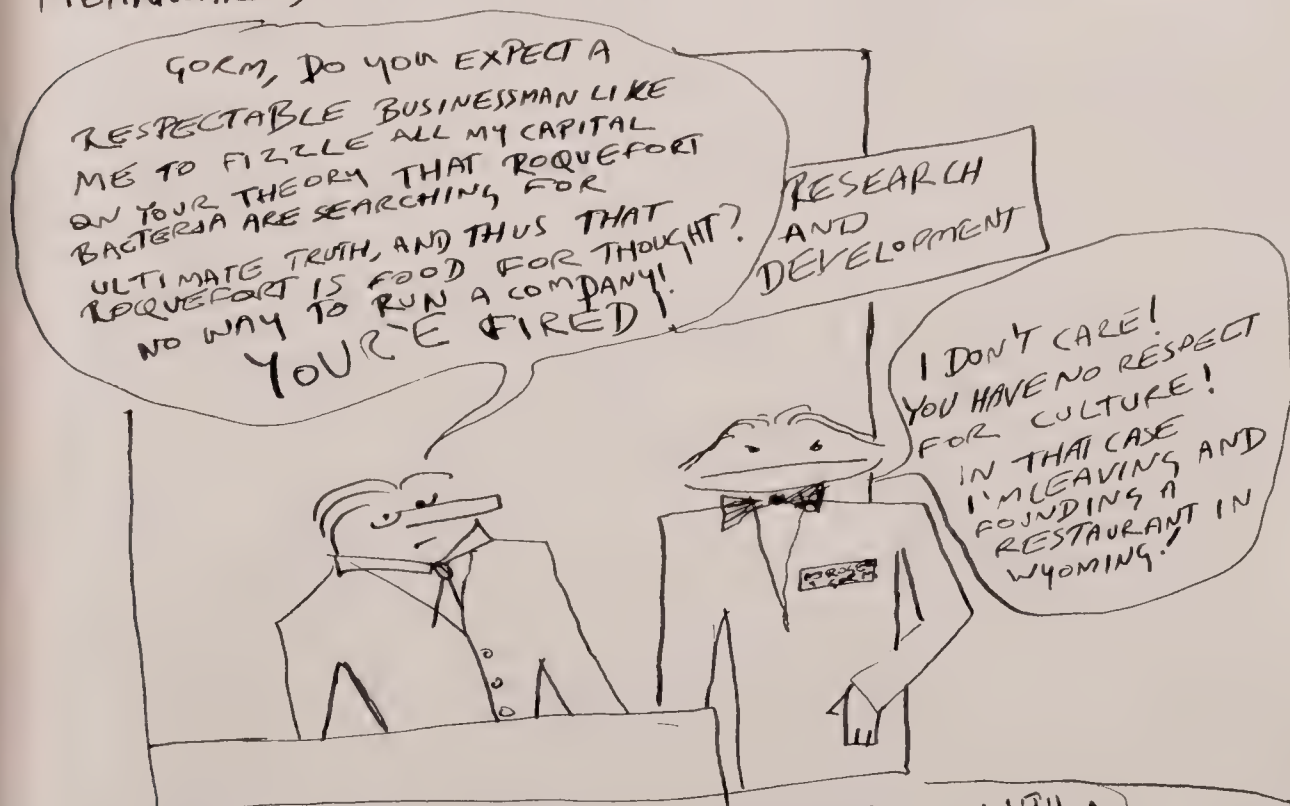 GORM, DO YOU EXPECT A
RESPECTABLE BUSINESSMAN LIKE
ME TO FIZZLE ALL MY CAPITAL
ON YOUR THEORY THAT ROQUEFORT
BACTERIA ARE SEARCHING FOR
ULTIMATE TRUTH, AND THUS THAT
ROQUEFORT IS FOOD FOR THOUGHT?
NO WAY TO RUN A COMPANY!
YOUR'E FIRED!
RESEARCH
AND
DEVELOPMENT
I DON'T CARE!
YOU HAVE NO RESPECT
FOR CULTURE!
IN THAT CASE
I'M LEAVING AND
FOUNDING A
RESTAURANT IN
WYOMING!
GORM
WITH A